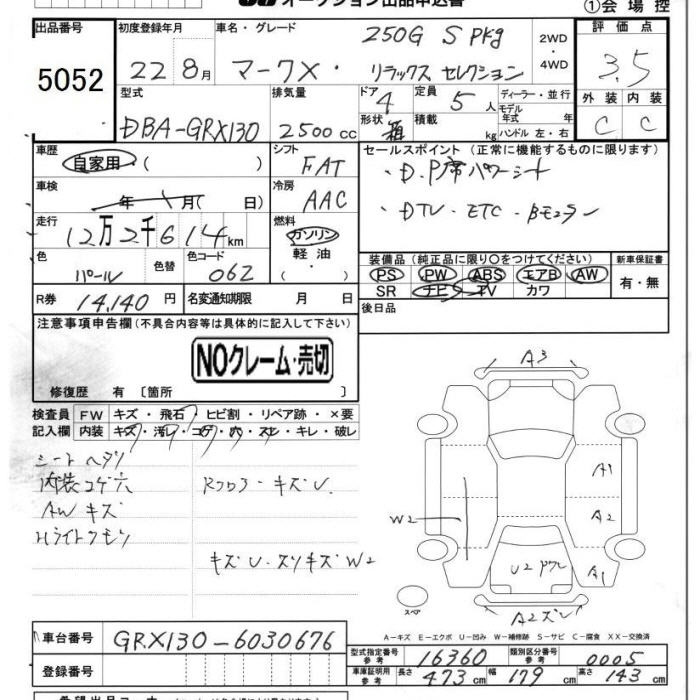 オークション出品申込書
①会場控
出品番号
5052
初度登録年月
22 8月
車名・グレード
250G S PKg
マークX・ リラックス セレクション
2WD・4WD
評価点
3.5
外装 内装
C C
型式
DBA-GRX130
排気量
2500cc
ドア
4
形状
箱
定員
5人
積載
kg
ディーラー・並行
モデル年式 年
ハンドル 左・右
車歴
自家用 ( )
シフト
FAT
車検
年 月( 日)
冷房
AAC
走行
12万2千614km
燃料
ガソリン
軽油・( )
色
パール
色替
色コード
062
R券 14,140円
名変通知期限 月 日
セールスポイント(正常に機能するものに限ります)
・D.P席パワーシート
・DTV.ETC.Bモニター
装備品(純正品に限り○をつけてください)
PS PW ABS エアB AW
SR ナビ TV カワ
新車保証書
有・無
後日品
注意事項申告欄(不具合内容等は具体的に記入して下さい)
NOクレーム・売切
修復歴 有〔箇所 〕
検査員記入欄
FW キズ・飛石・ヒビ割・リペア跡・×要
内装 キズ・汚レ・コゲ・穴・スレ・キレ・破レ
シート ヘタリ
内装コゲ穴
AW キズ
Hライトクモリ
キズU.
キズU.スリキズW2
A3
A1
A2
W2
A1
U2
A2ズレ
スペア
A-キズ E-エクボ U-凹み W-補修跡 S-サビ C-腐食 XX-交換済
車台番号
GRX130-6030676
登録番号
型式指定番号 参考
16360
類別区分番号 参考
0005
車庫証明用 参考
長さ 473cm 幅 179cm 高さ 143cm